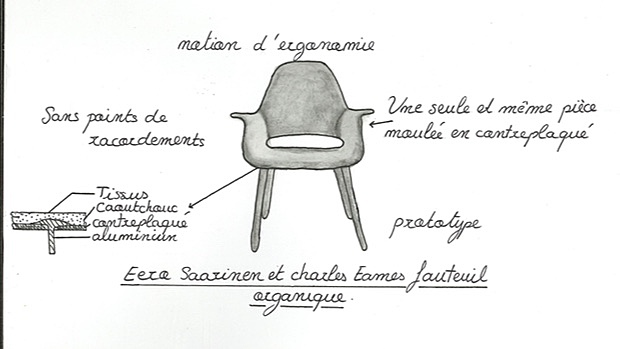 notion d'ergonomie
Sans points de
racordements
Une seule et même pièce
mouleé en contreplaqué
Tissus
Caoutchouc
contreplaqué
aluminiun
prototype
Eero Saarinen et charles Eames fauteuil
organique.